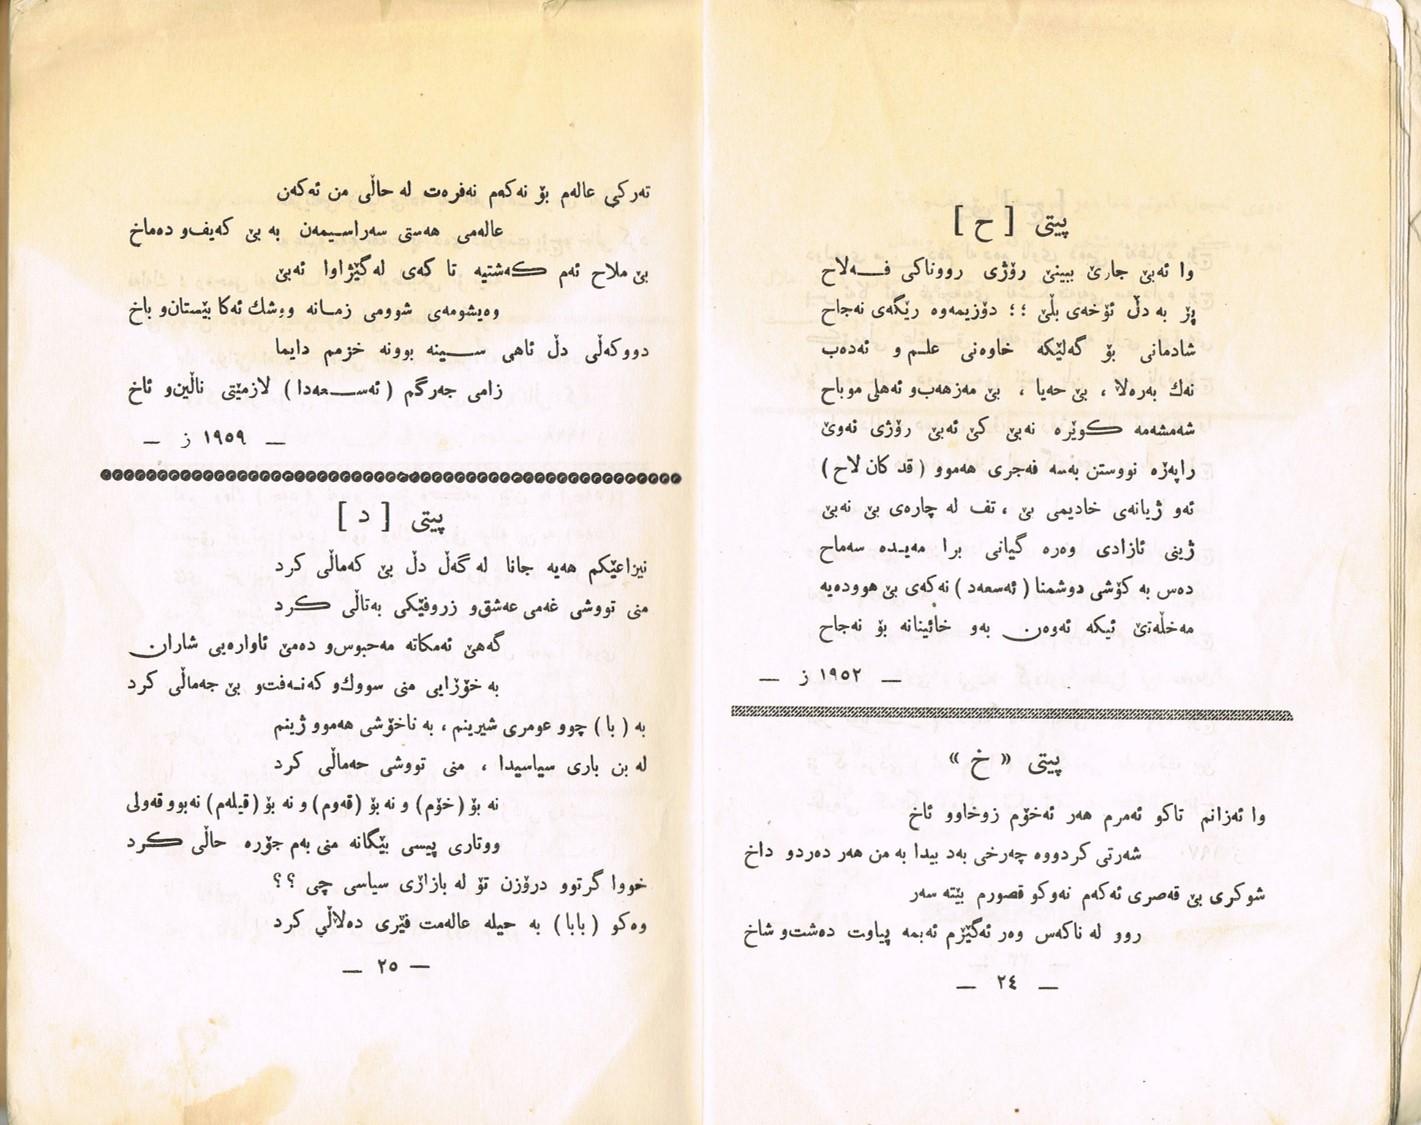 پیتی [ ح ]
وا ئەبێ جارێ ببینێ رۆژی رووناکی فـــەلاح
پڕ بە دڵ ئۆخەی بڵێ ؛؛ دۆزیمەوە رێگەی نەجاح
شادمانی بۆ گەلێکە خاوەنی علـم و ئەدەب
نەك بەرەڵا ، بێ حەیا ، بێ مەزهەب و ئەهلی موباح
شەمشەمە کوێرە نەبێ کێ ئەبێ رۆژی ئەوێ
راپەڕە نووستن بەسە فەجری هەموو ( قد کان لاح )
ئەو ژیانەی خادیمی بێ ، تف لە چارەی بێ نەبێ
ژینی ئازادی وەرە گیانی برا مەیـدە سەماح
دەس بە کۆشی دوشمنا ( ئەسعەد ) نەکەی بێ هوودەیە
مەخڵەتێ ئیکە ئەوەن بەو خائینانە بۆ نەجاح
— ١٩٥٢ ز —
پیتی « خ »
وا ئەزانم تاکو ئەمرم هەر ئەخۆم زوخاوو ئاخ
شەرتی کردووە چەرخی بەد بیدا بە من هەر دەردو داخ
شوکری بێ قەصری ئەکەم نەوکو قصورم بێتە سەر
روو لە ناکەس وەر ئەگێڕم ئەبمە پیاوت دەشت و شاخ
— ٢٤ —
تەرکی عالەم بۆ نەکەم نەفرەت لە حاڵی من ئەکەن
عالەمی هەستی سەراسـیمەن بە بێ کەیف و دەماخ
بێ ملاح ئەم کەشتیە تا کەی لە گێژاوا ئەبێ
وەیشومەی شوومی زمـانە ووشك ئەکا بێستان و باخ
دووکەڵی دڵ ئاهی ســـینە بوونە خزمم دایما
زامی جەرگم ( ئەســـعەدا ) لازمێتی ناڵین و ئاخ
— ١٩٥٩ ز —
پیتی [ د ]
نیزاعێکم هەیە جانا لە گەڵ دڵ بێ کەماڵی کرد
منی تووشی غەمی عەشق و زروفێکی بەتاڵی کرد
گەهێ ئەمکاتە مەحبوس و دەمێ ئاوارەیی شاران
بە خۆڕایی منی سووك و کەنـەفت و بێ جەماڵی کرد
بە ( با ) چوو عومری شیرینم ، بە ناخۆشی هەموو ژینم
لە بن باری سیاسیدا ، منی تووشی حەماڵی کرد
نە بۆ (خۆم) و نە بۆ (قەوم) و نە بۆ (قیلەم) نەبوو قەولی
ووتاری پیسی بێگانە منی بەم جۆرە حاڵی کرد
خووا گرتوو درۆزن تۆ لە بازاڕی سیاسی چی ؟؟
وەکو ( بابا ) بە حیلە عالەمت فێری دەلاڵی کرد
— ٢٥ —